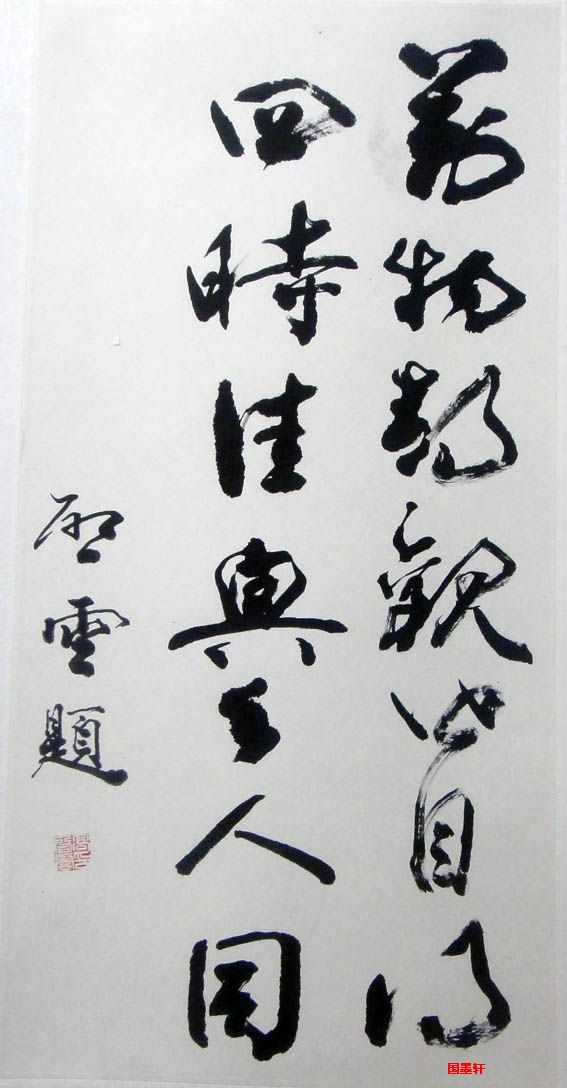 萬物静觀皆自得
四時佳興与人同
啓雲題
国墨轩